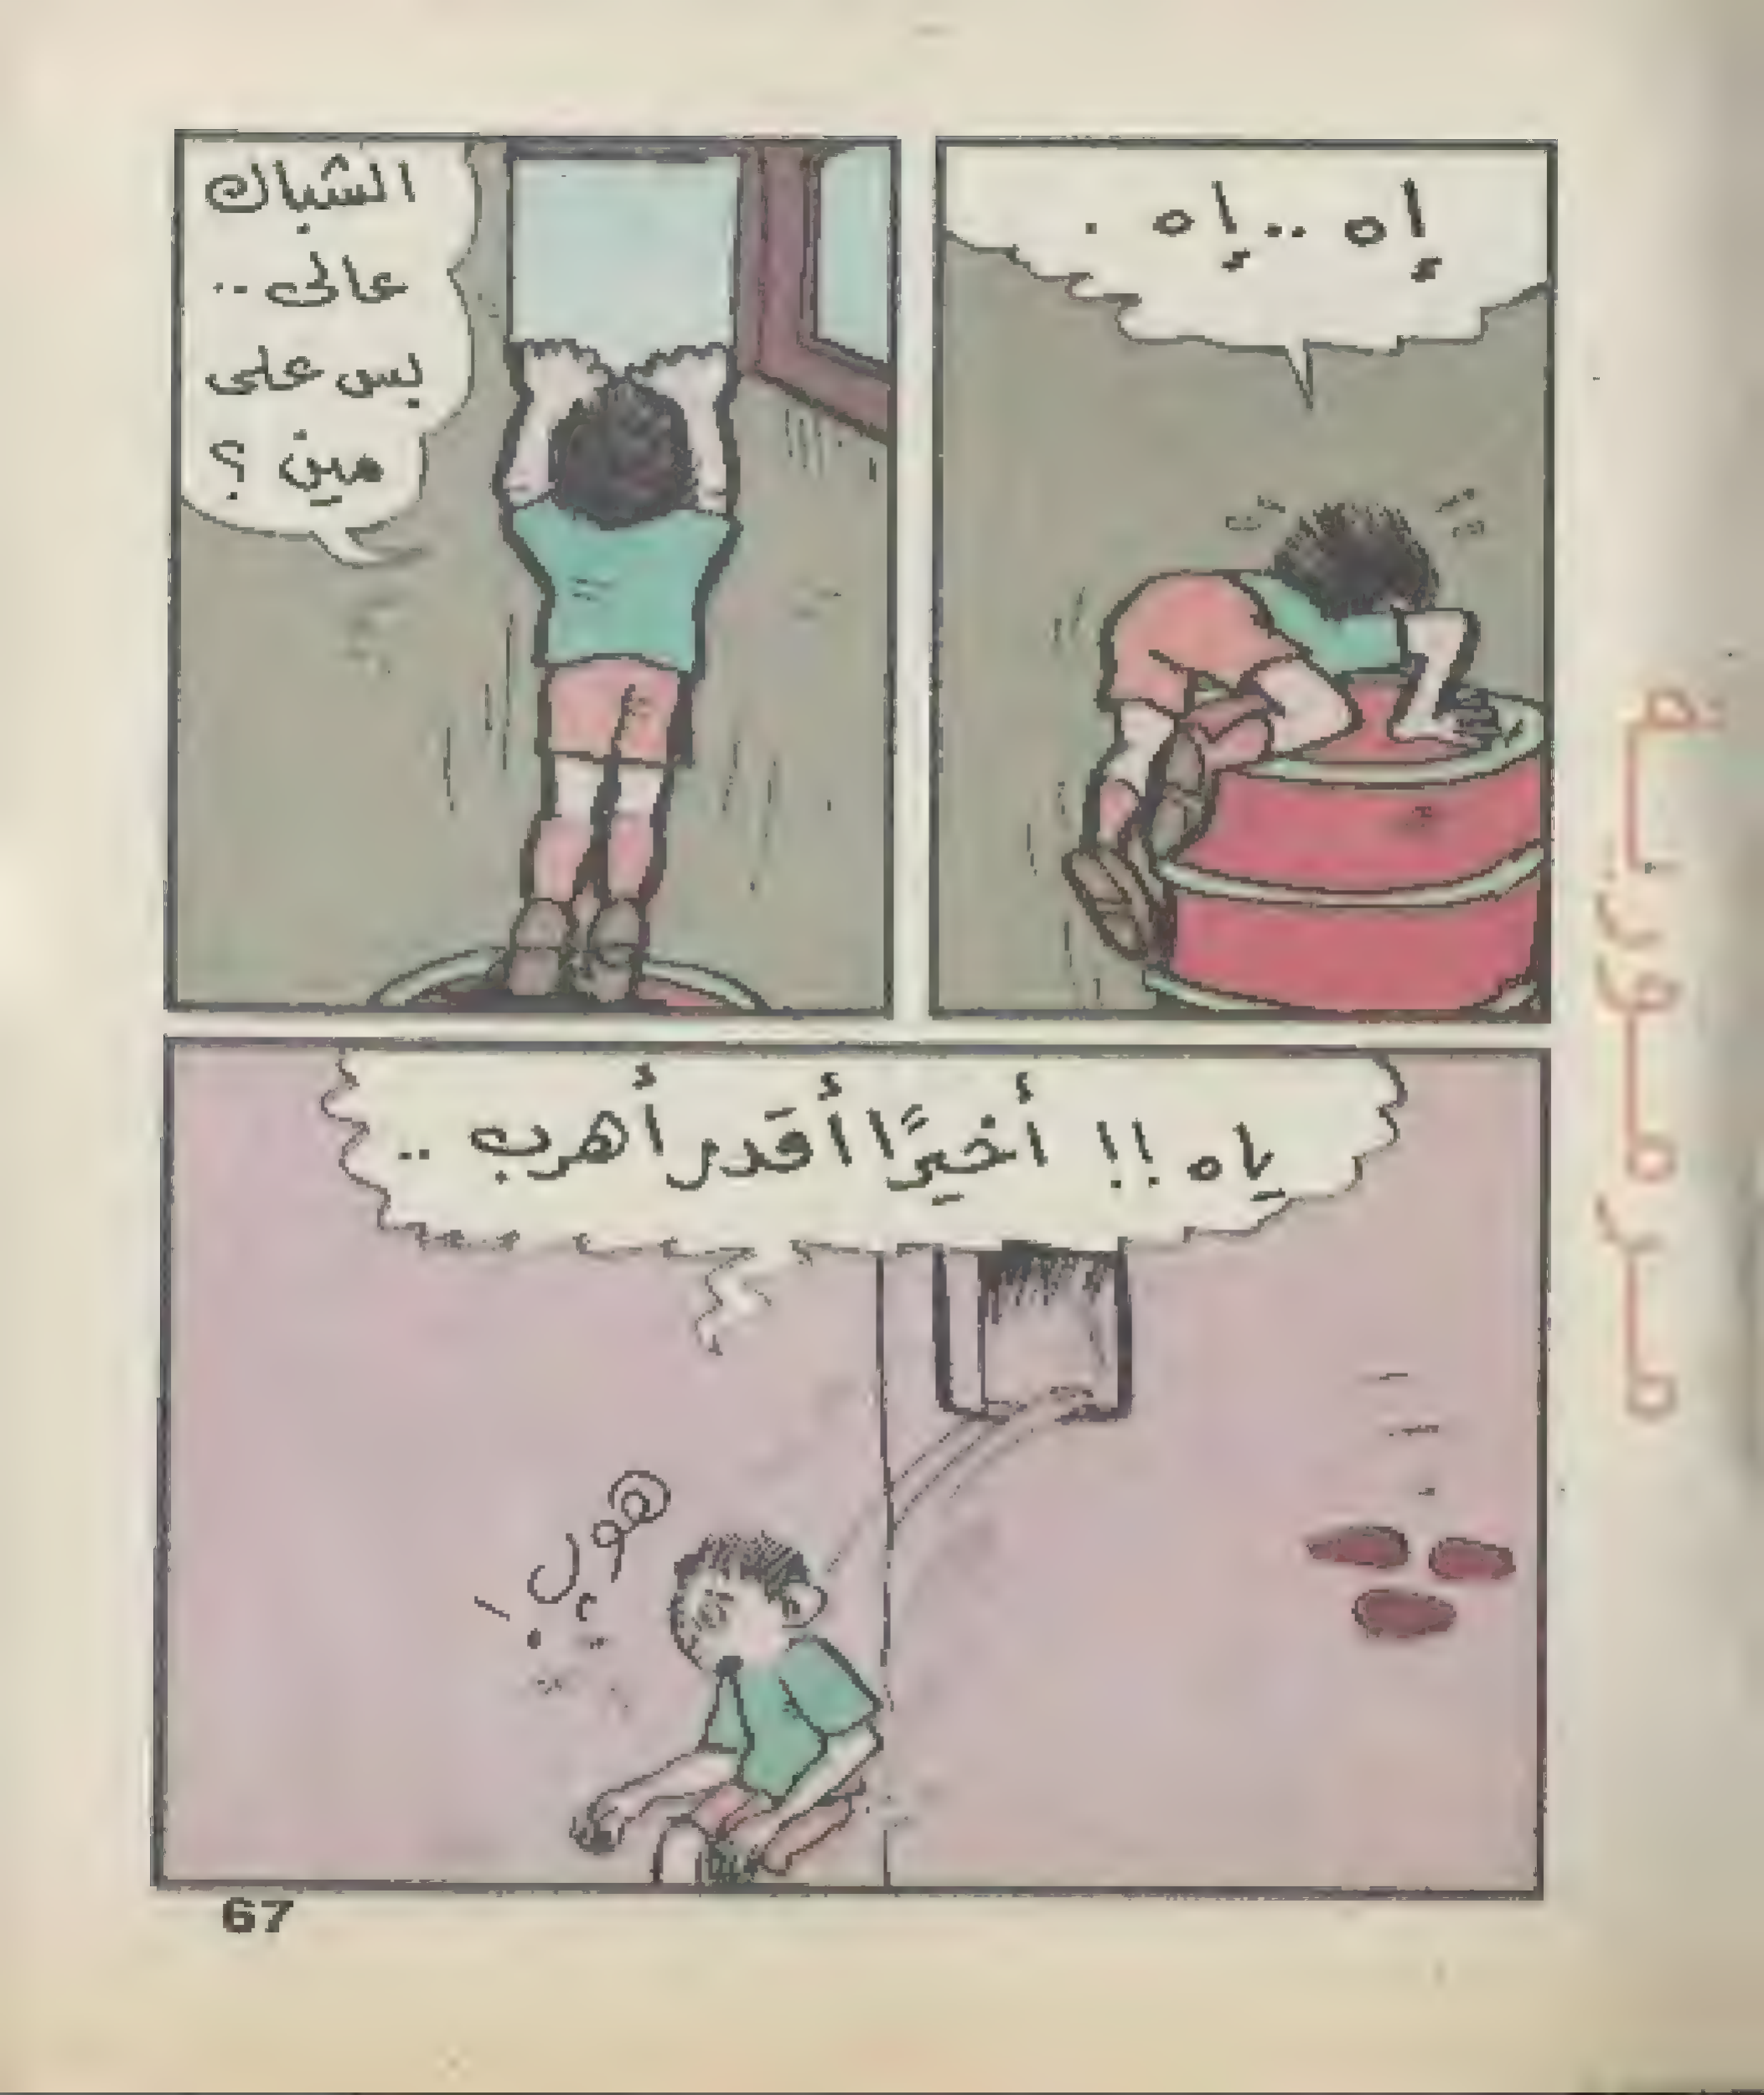 إه .. إه .
الشباك
عالى ..
بس على
مين ؟
ياه !! أخيرًا أقدر أهرب ..
هوب
!
67